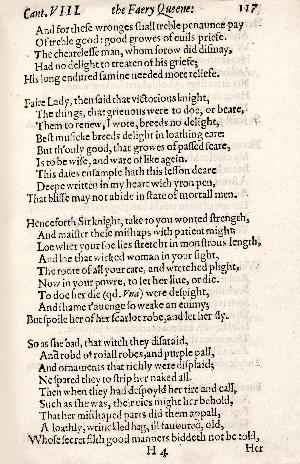 Cant. VIII. the Faery Queene. 117
And for these wronges shall treble penaunce pay
Of treble good: good growes of euils priefe.
The chearelesse man, whom sorow did dismay,
Had no delight to treaten of his griefe;
His long endured famine needed more reliefe.
Faire Lady, then said that victorious knight,
The things, that grieuous were to doe, or beare,
Them to renew, I wote, breeds no delight,
Best musicke breeds delight in loathing eare:
But th'only good, that growes of passed feare,
Is to be wise, and ware of like agein.
This daies ensample hath this lesson deare
Deepe written in my heart with yron pen,
That blisse may not abide in state of mortall men.
Henceforth Sir knight, take to you wonted strength,
And maister these mishaps with patient might;
Loe wher your foe lies stretcht in monstrous length,
And loe that wicked woman in your sight,
The roote of all your care, and wretched plight,
Now in your powre, to let her liue, or die.
To doe her die (qd. Vna) were despight,
And shame t'auenge so weake an enimy;
But spoile her of her scarlot robe, and let her fly.
So as she bad, that witch they disaraid,
And robd of roiall robes, and purple pall,
And ornaments that richly were displaid;
Ne spared they to strip her naked all.
Then when they had despoyld her tire and call,
Such as she was, their eies might her behold,
That her misshaped parts did them appall,
A loathly, wrinckled hag, ill fauoured, old,
Whose secret filth good manners biddeth not be told,
H 4 Her